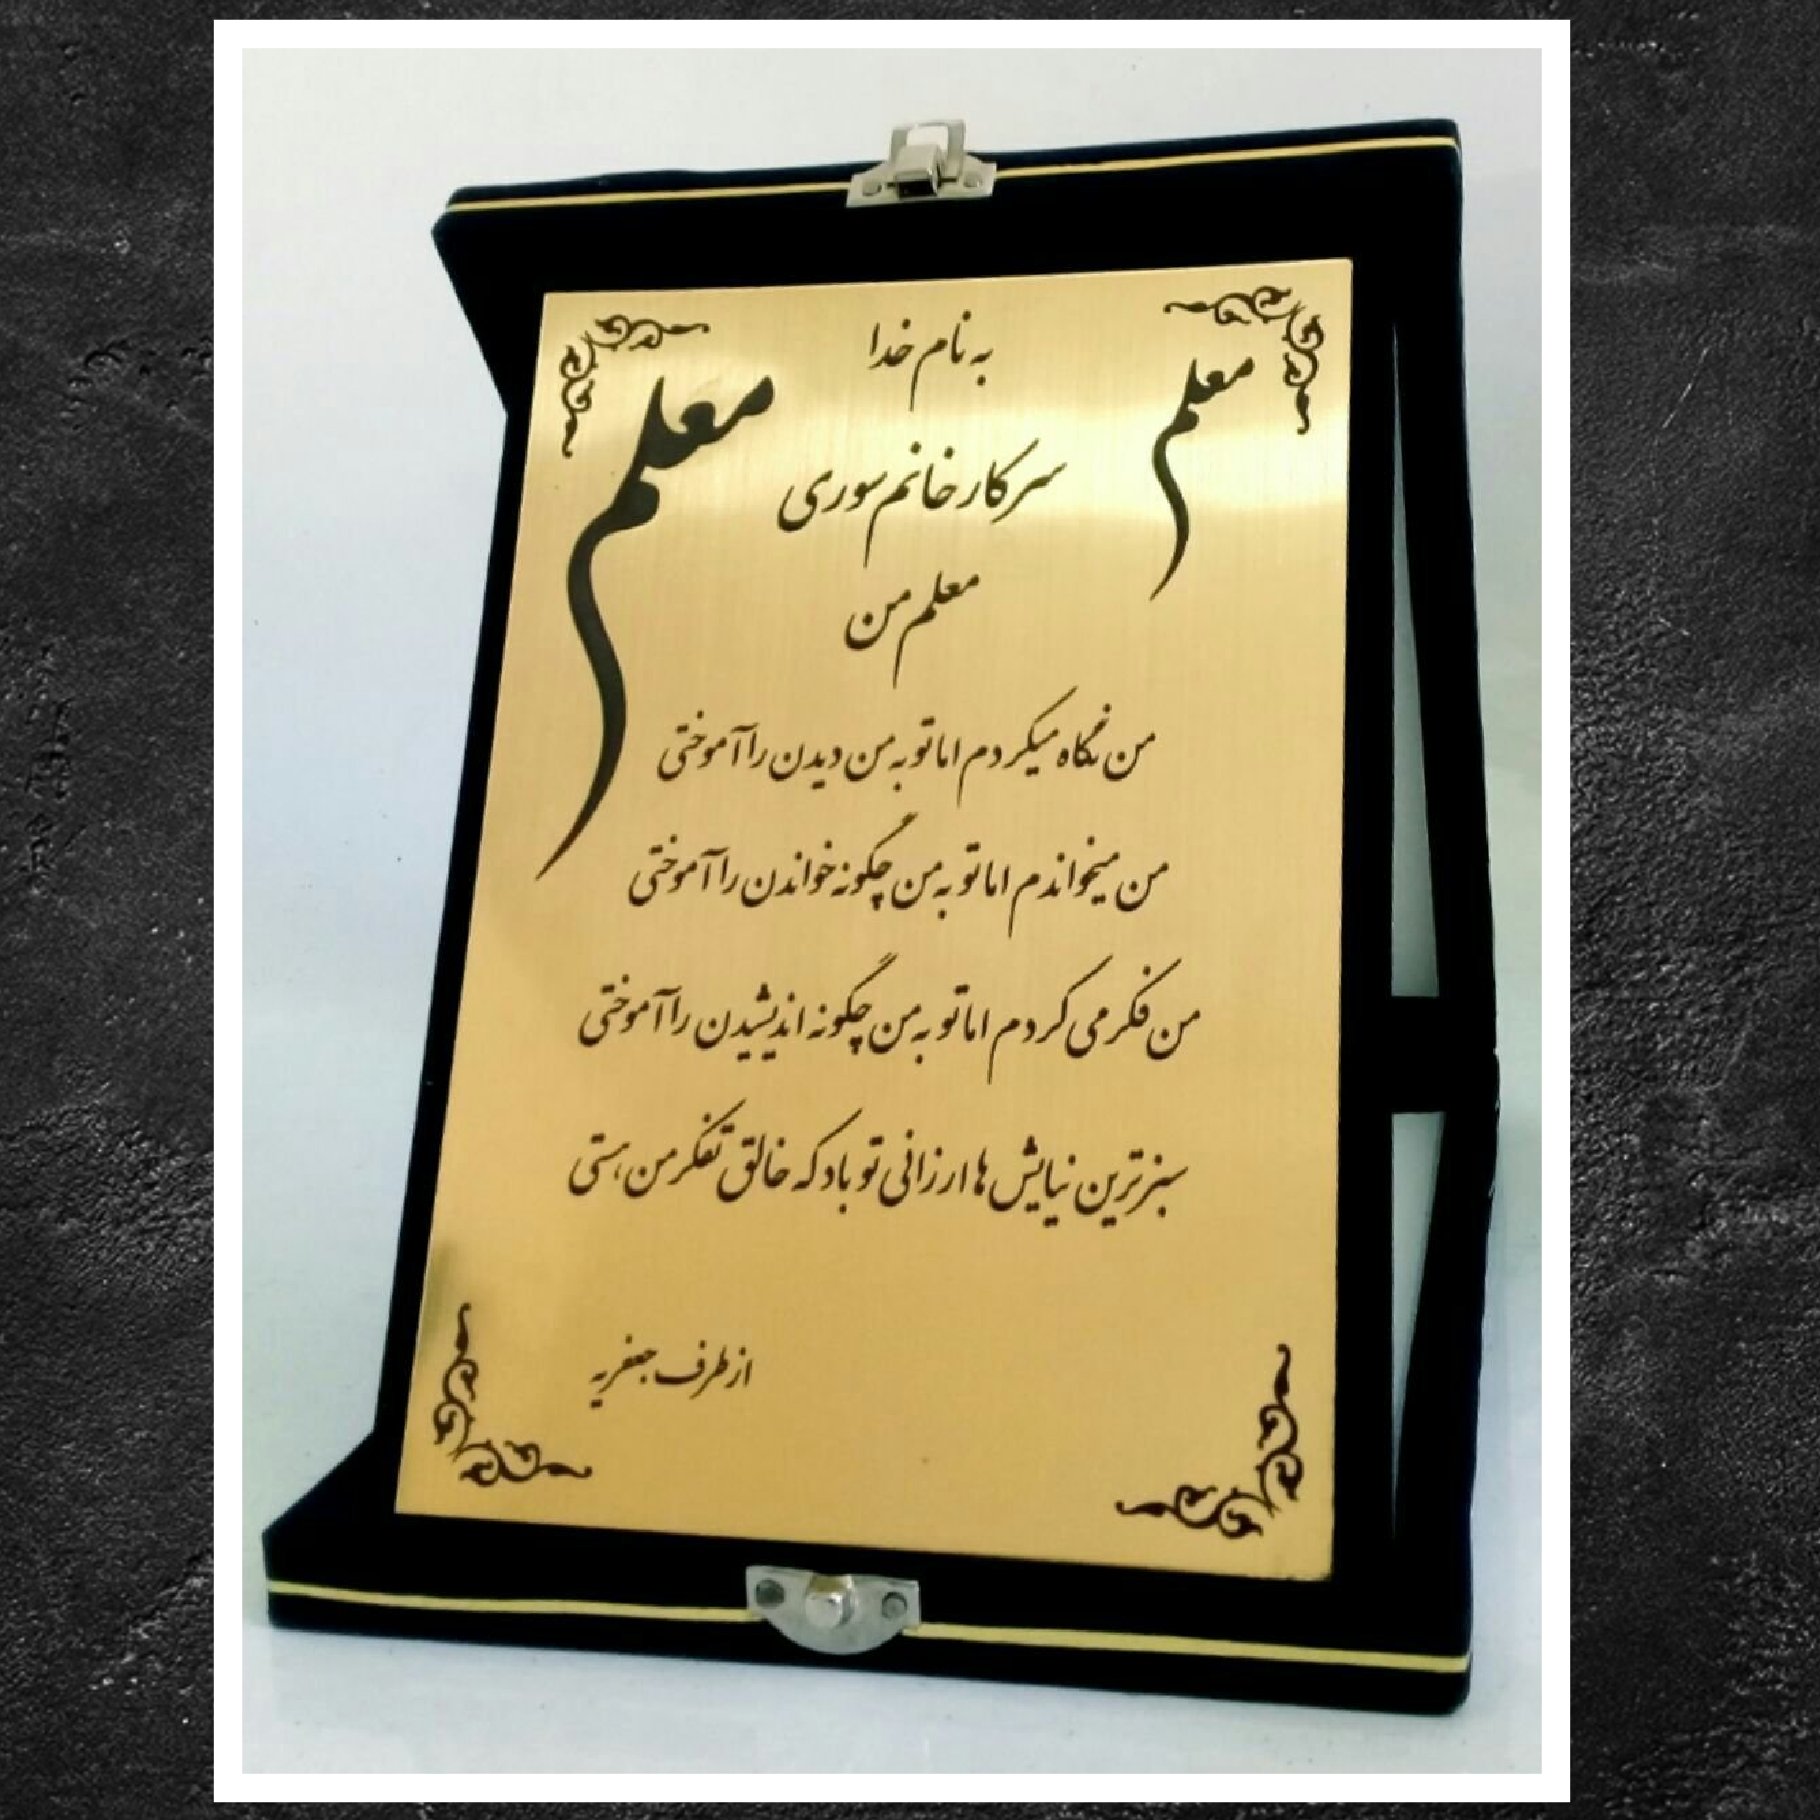 به نام خدا
معلم
معلم
سرکار خانم سوری
معلم من
من نگاه میکردم اما تو به من دیدن را آموختی
من میخواندم اما تو به من چگونه خواندن را آموختی
من فکر می کردم اما تو به من چگونه اندیشیدن را آموختی
سبزترین نیایش ها ارزانی تو باد که خالق تفکر من هستی
از طرف جعفریه